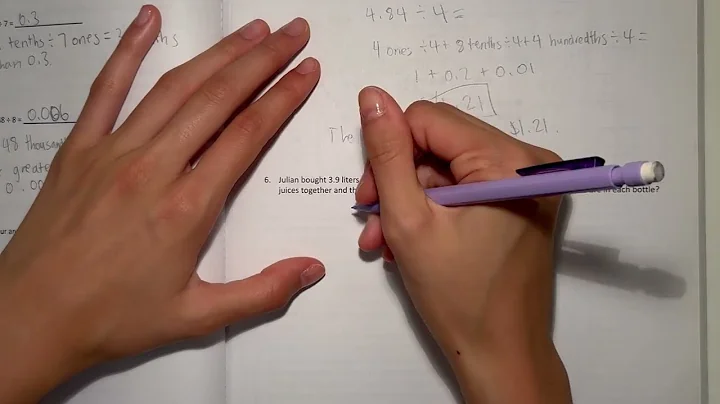 ÷7= 0.3
tenths ÷ 7 ones =
than 0.3.
8÷8= 0.006
48 thousan
greate
0.00
ur an
4.84 ÷ 4 =
4 ones ÷4 + 8 tenths ÷4 + 4 hundredths ÷ 4 =
1 + 0.2 + 0.01
.21
The $1.21.
6. Julian bought 3.9 liters
juices together and in each bottle?